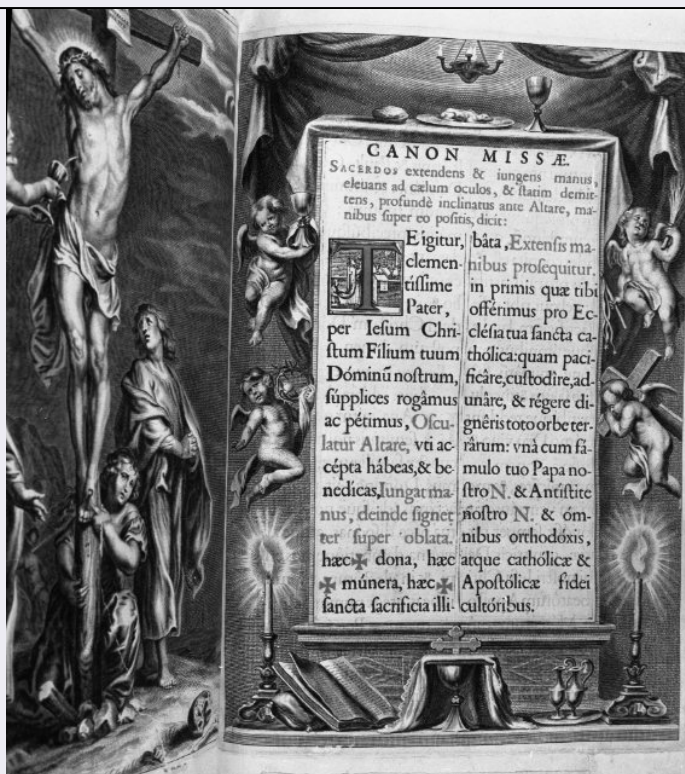 CANON MISSÆ.
SACERDOS extendens & iungens manus,
eleuans ad cælum oculos, & ſtatim demit-
tens, profundè inclinatus ante Altare, ma-
nibus ſuper eo poſitis, dicit:
TE igitur,
clemen-
tiſſime
Pater,
per Ieſum Chri-
ſtum Filium tuum
Dóminũ noſtrum,
ſúpplices rogâmus
ac pétimus, Oſcu-
latur Altare, vti ac-
cépta hábeas, & be-
nedícas, Iungat ma-
nus, deinde ſignet
ter ſuper oblata.
hæc ✠ dona, hæc
✠ múnera, hæc ✠
ſancta ſacrificia illi-
bâta, Extenſis ma-
nibus proſequitur.
in primis quæ tibi
offérimus pro Ec-
cléſia tua ſancta ca-
thólica: quam paci-
ficâre, cuſtodire, ad-
unâre, & régere di-
gnêris toto orbe ter-
rârum: vnà cum fá-
mulo tuo Papa no-
ſtro N. & Antíſtite
noſtro N. & óm-
nibus orthodóxis,
atque cathólicæ &
Apoſtólicæ fidei
cultóribus.